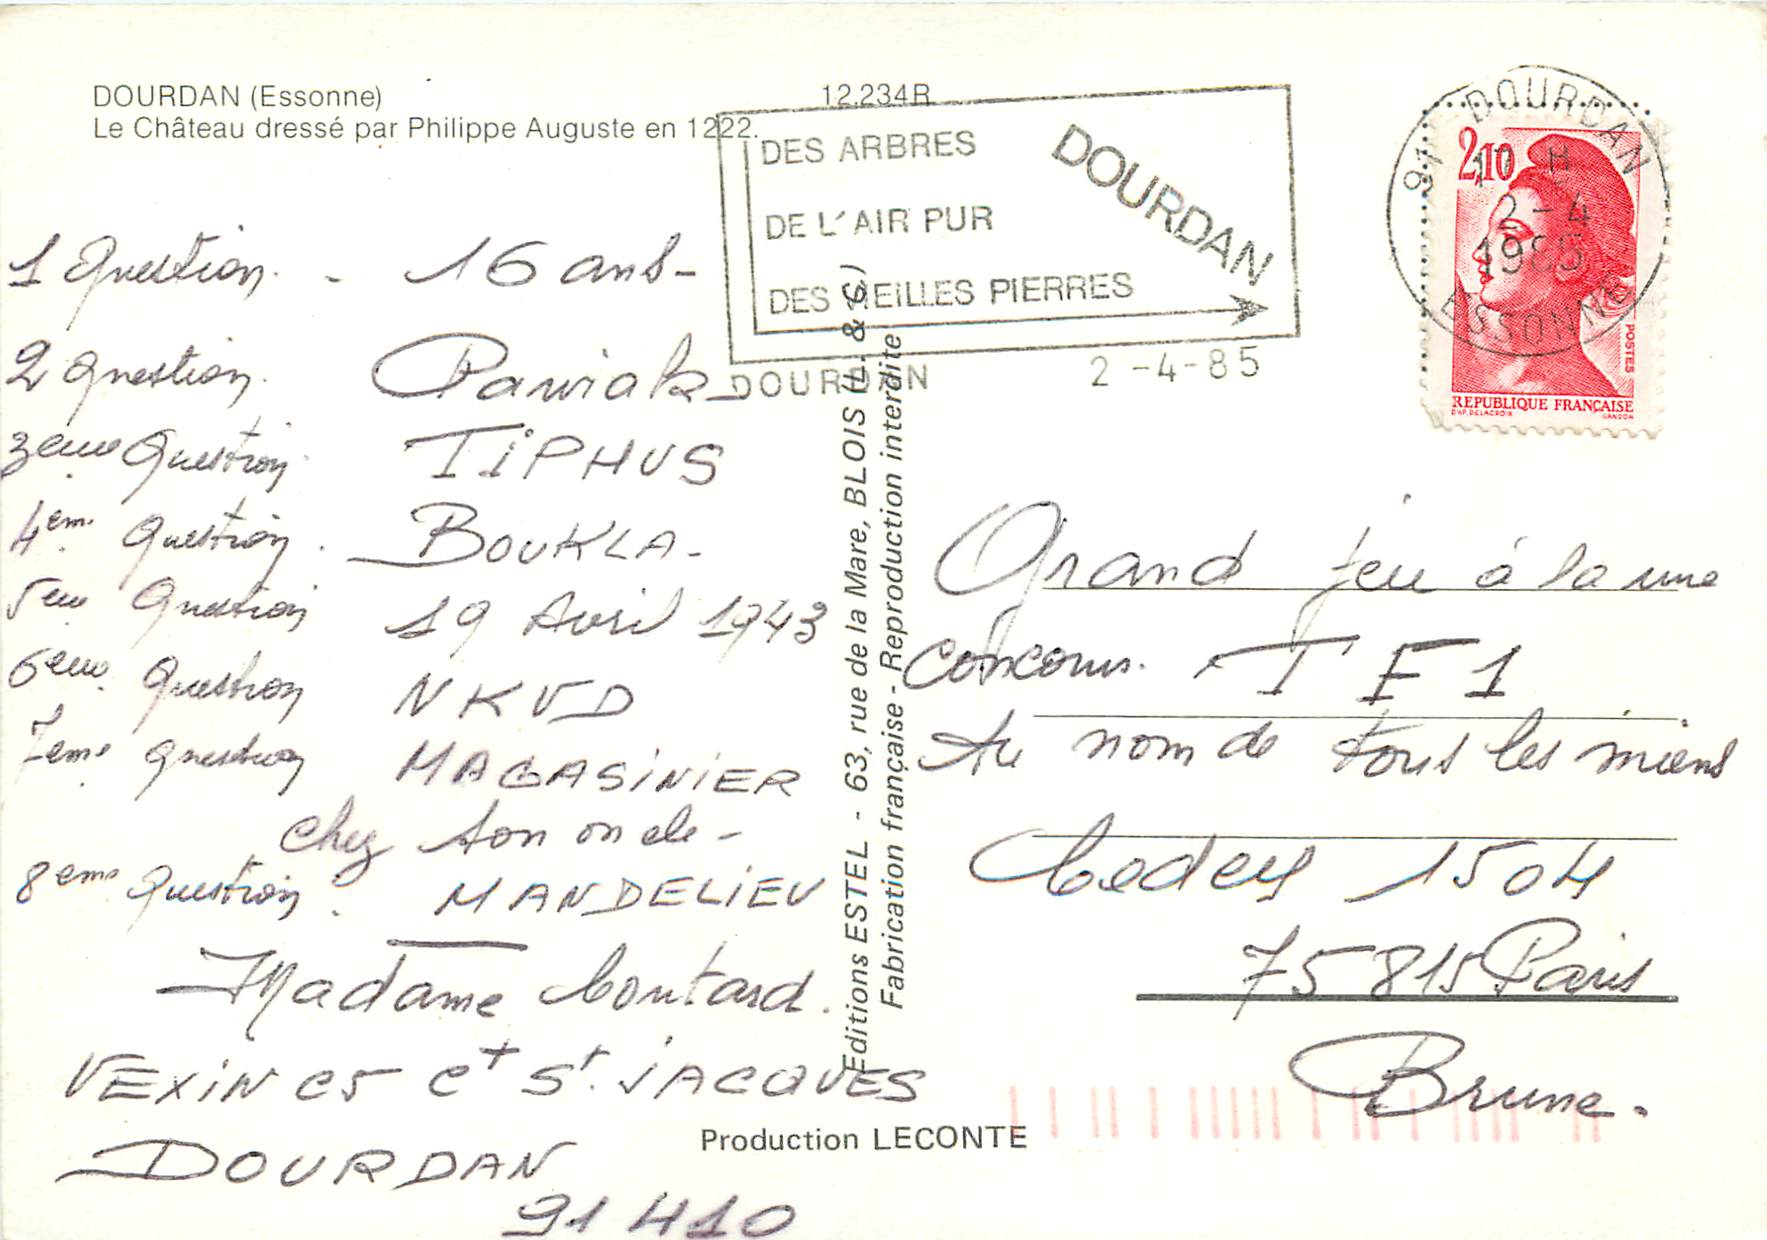 DOURDAN (Essonne)
Le Château dressé par Philippe Auguste en 1222.
12.234R
DES ARBRES
DE L'AIR PUR
DES VIEILLES PIERRES
DOURDAN
DOURDAN 2-4-85
91 DOURDAN
17 H
2-4
1985
ESSONNE
2,10
POSTES
REPUBLIQUE FRANÇAISE
D'AP. DELACROIX GANDON
1 Question. - 16 ans -
2 Question. Pawiak
3eme Question TiPHUS
4em. Question. BOUKLA-
5eme Question 19 Avril 1943
6eme Question NKVD
7eme Question MAGASiNiER
chez son oncle -
8eme Question. MANDELiEU
Madame Contard.
VEXiN C5 Ct St. JACQUES
DOURDAN
91410
Editions ESTEL - 63, rue de la Mare, BLOIS (L. & C.)
Fabrication française - Reproduction interdite
Production LECONTE
Grand jeu à la une
concours. TF1
Au nom de tous les miens
Cedex 1504
75815 Paris
Brune.